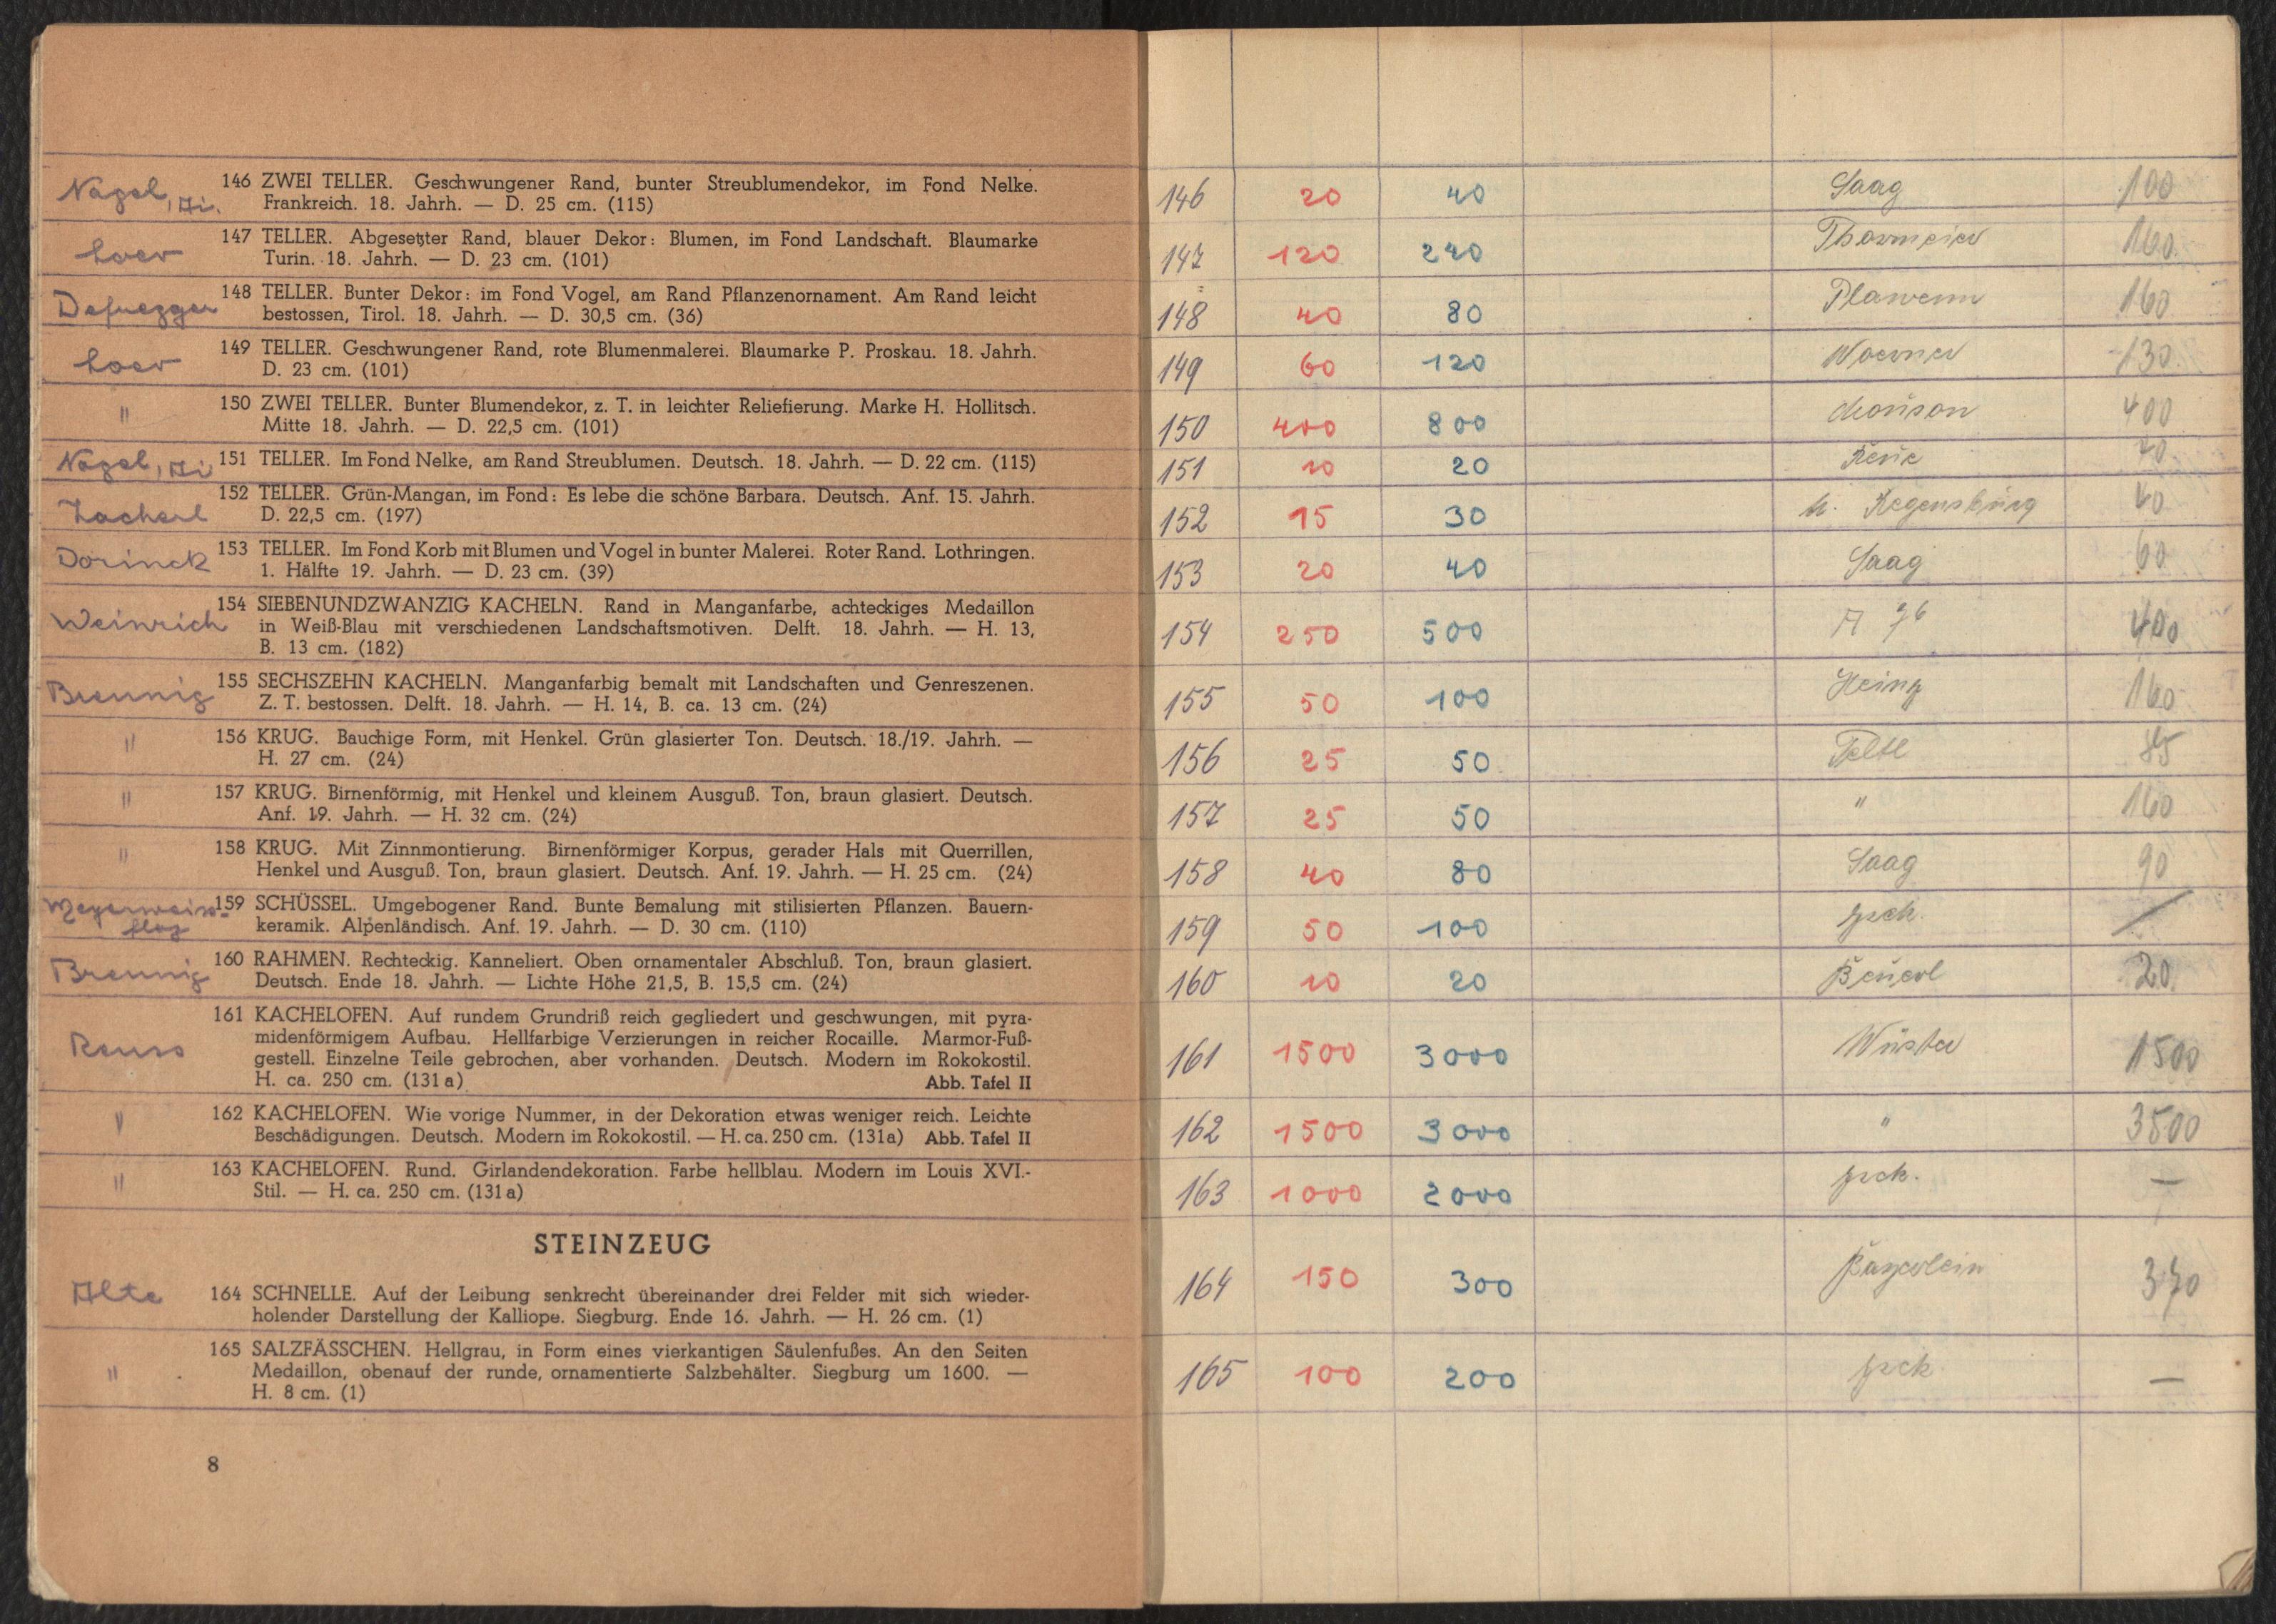 Nagel, Ai. 146 ZWEI TELLER. Geschwungener Rand, bunter Streublumendekor, im Fond Nelke.
Frankreich. 18. Jahrh. — D. 25 cm. (115)
147 TELLER. Abgesetzter Rand, blauer Dekor: Blumen, im Fond Landschaft. Blaumarke
Turin. 18. Jahrh. — D. 23 cm. (101)
Defregger 148 TELLER. Bunter Dekor: im Fond Vogel, am Rand Pflanzenornament. Am Rand leicht
bestossen, Tirol. 18. Jahrh. — D. 30,5 cm. (36)
149 TELLER. Geschwungener Rand, rote Blumenmalerei. Blaumarke P. Proskau. 18. Jahrh.
D. 23 cm. (101)
" 150 ZWEI TELLER. Bunter Blumendekor, z. T. in leichter Reliefierung. Marke H. Hollitsch.
Mitte 18. Jahrh. — D. 22,5 cm. (101)
Nagel, Ai 151 TELLER. Im Fond Nelke, am Rand Streublumen. Deutsch. 18. Jahrh. — D. 22 cm. (115)
Zacherl 152 TELLER. Grün-Mangan, im Fond: Es lebe die schöne Barbara. Deutsch. Anf. 15. Jahrh.
D. 22,5 cm. (197)
Dorinck 153 TELLER. Im Fond Korb mit Blumen und Vogel in bunter Malerei. Roter Rand. Lothringen.
1. Hälfte 19. Jahrh. — D. 23 cm. (39)
Weinrich 154 SIEBENUNDZWANZIG KACHELN. Rand in Manganfarbe, achteckiges Medaillon
in Weiß-Blau mit verschiedenen Landschaftsmotiven. Delft. 18. Jahrh. — H. 13,
B. 13 cm. (182)
Brennig 155 SECHSZEHN KACHELN. Manganfarbig bemalt mit Landschaften und Genreszenen.
Z. T. bestossen. Delft. 18. Jahrh. — H. 14, B. ca. 13 cm. (24)
" 156 KRUG. Bauchige Form, mit Henkel. Grün glasierter Ton. Deutsch. 18./19. Jahrh. —
H. 27 cm. (24)
" 157 KRUG. Birnenförmig, mit Henkel und kleinem Ausguß. Ton, braun glasiert. Deutsch.
Anf. 19. Jahrh. — H. 32 cm. (24)
" 158 KRUG. Mit Zinnmontierung. Birnenförmiger Korpus, gerader Hals mit Querrillen,
Henkel und Ausguß. Ton, braun glasiert. Deutsch. Anf. 19. Jahrh. — H. 25 cm. (24)
159 SCHÜSSEL. Umgebogener Rand. Bunte Bemalung mit stilisierten Pflanzen. Bauern-
keramik. Alpenländisch. Anf. 19. Jahrh. — D. 30 cm. (110)
Brennig 160 RAHMEN. Rechteckig. Kanneliert. Oben ornamentaler Abschluß. Ton, braun glasiert.
Deutsch. Ende 18. Jahrh. — Lichte Höhe 21,5, B. 15,5 cm. (24)
161 KACHELOFEN. Auf rundem Grundriß reich gegliedert und geschwungen, mit pyra-
midenförmigem Aufbau. Hellfarbige Verzierungen in reicher Rocaille. Marmor-Fuß-
gestell. Einzelne Teile gebrochen, aber vorhanden. Deutsch. Modern im Rokokostil.
H. ca. 250 cm. (131a) Abb. Tafel II
" 162 KACHELOFEN. Wie vorige Nummer, in der Dekoration etwas weniger reich. Leichte
Beschädigungen. Deutsch. Modern im Rokokostil. — H. ca. 250 cm. (131a) Abb. Tafel II
" 163 KACHELOFEN. Rund. Girlandendekoration. Farbe hellblau. Modern im Louis XVI.-
Stil. — H. ca. 250 cm. (131a)
STEINZEUG
Alte 164 SCHNELLE. Auf der Leibung senkrecht übereinander drei Felder mit sich wieder-
holender Darstellung der Kalliope. Siegburg. Ende 16. Jahrh. — H. 26 cm. (1)
" 165 SALZFÄSSCHEN. Hellgrau, in Form eines vierkantigen Säulenfußes. An den Seiten
Medaillon, obenauf der runde, ornamentierte Salzbehälter. Siegburg um 1600. —
H. 8 cm. (1)
8
146 20 40 Saag 100
147 120 240 160
148 40 80 Plawenn 160
149 60 120 Woerner 130
150 400 800 400
151 10 20
152 15 30 Regensburg 40
153 20 40 Saag 60
154 250 500 400
155 50 100 160
156 25 50 85
157 25 50 " 160
158 40 80 Saag 90
159 50 100
160 10 20 20
161 1500 3000 Wüster 1500
162 1500 3000 " 3500
163 1000 2000 —
164 150 300 370
165 100 200 —